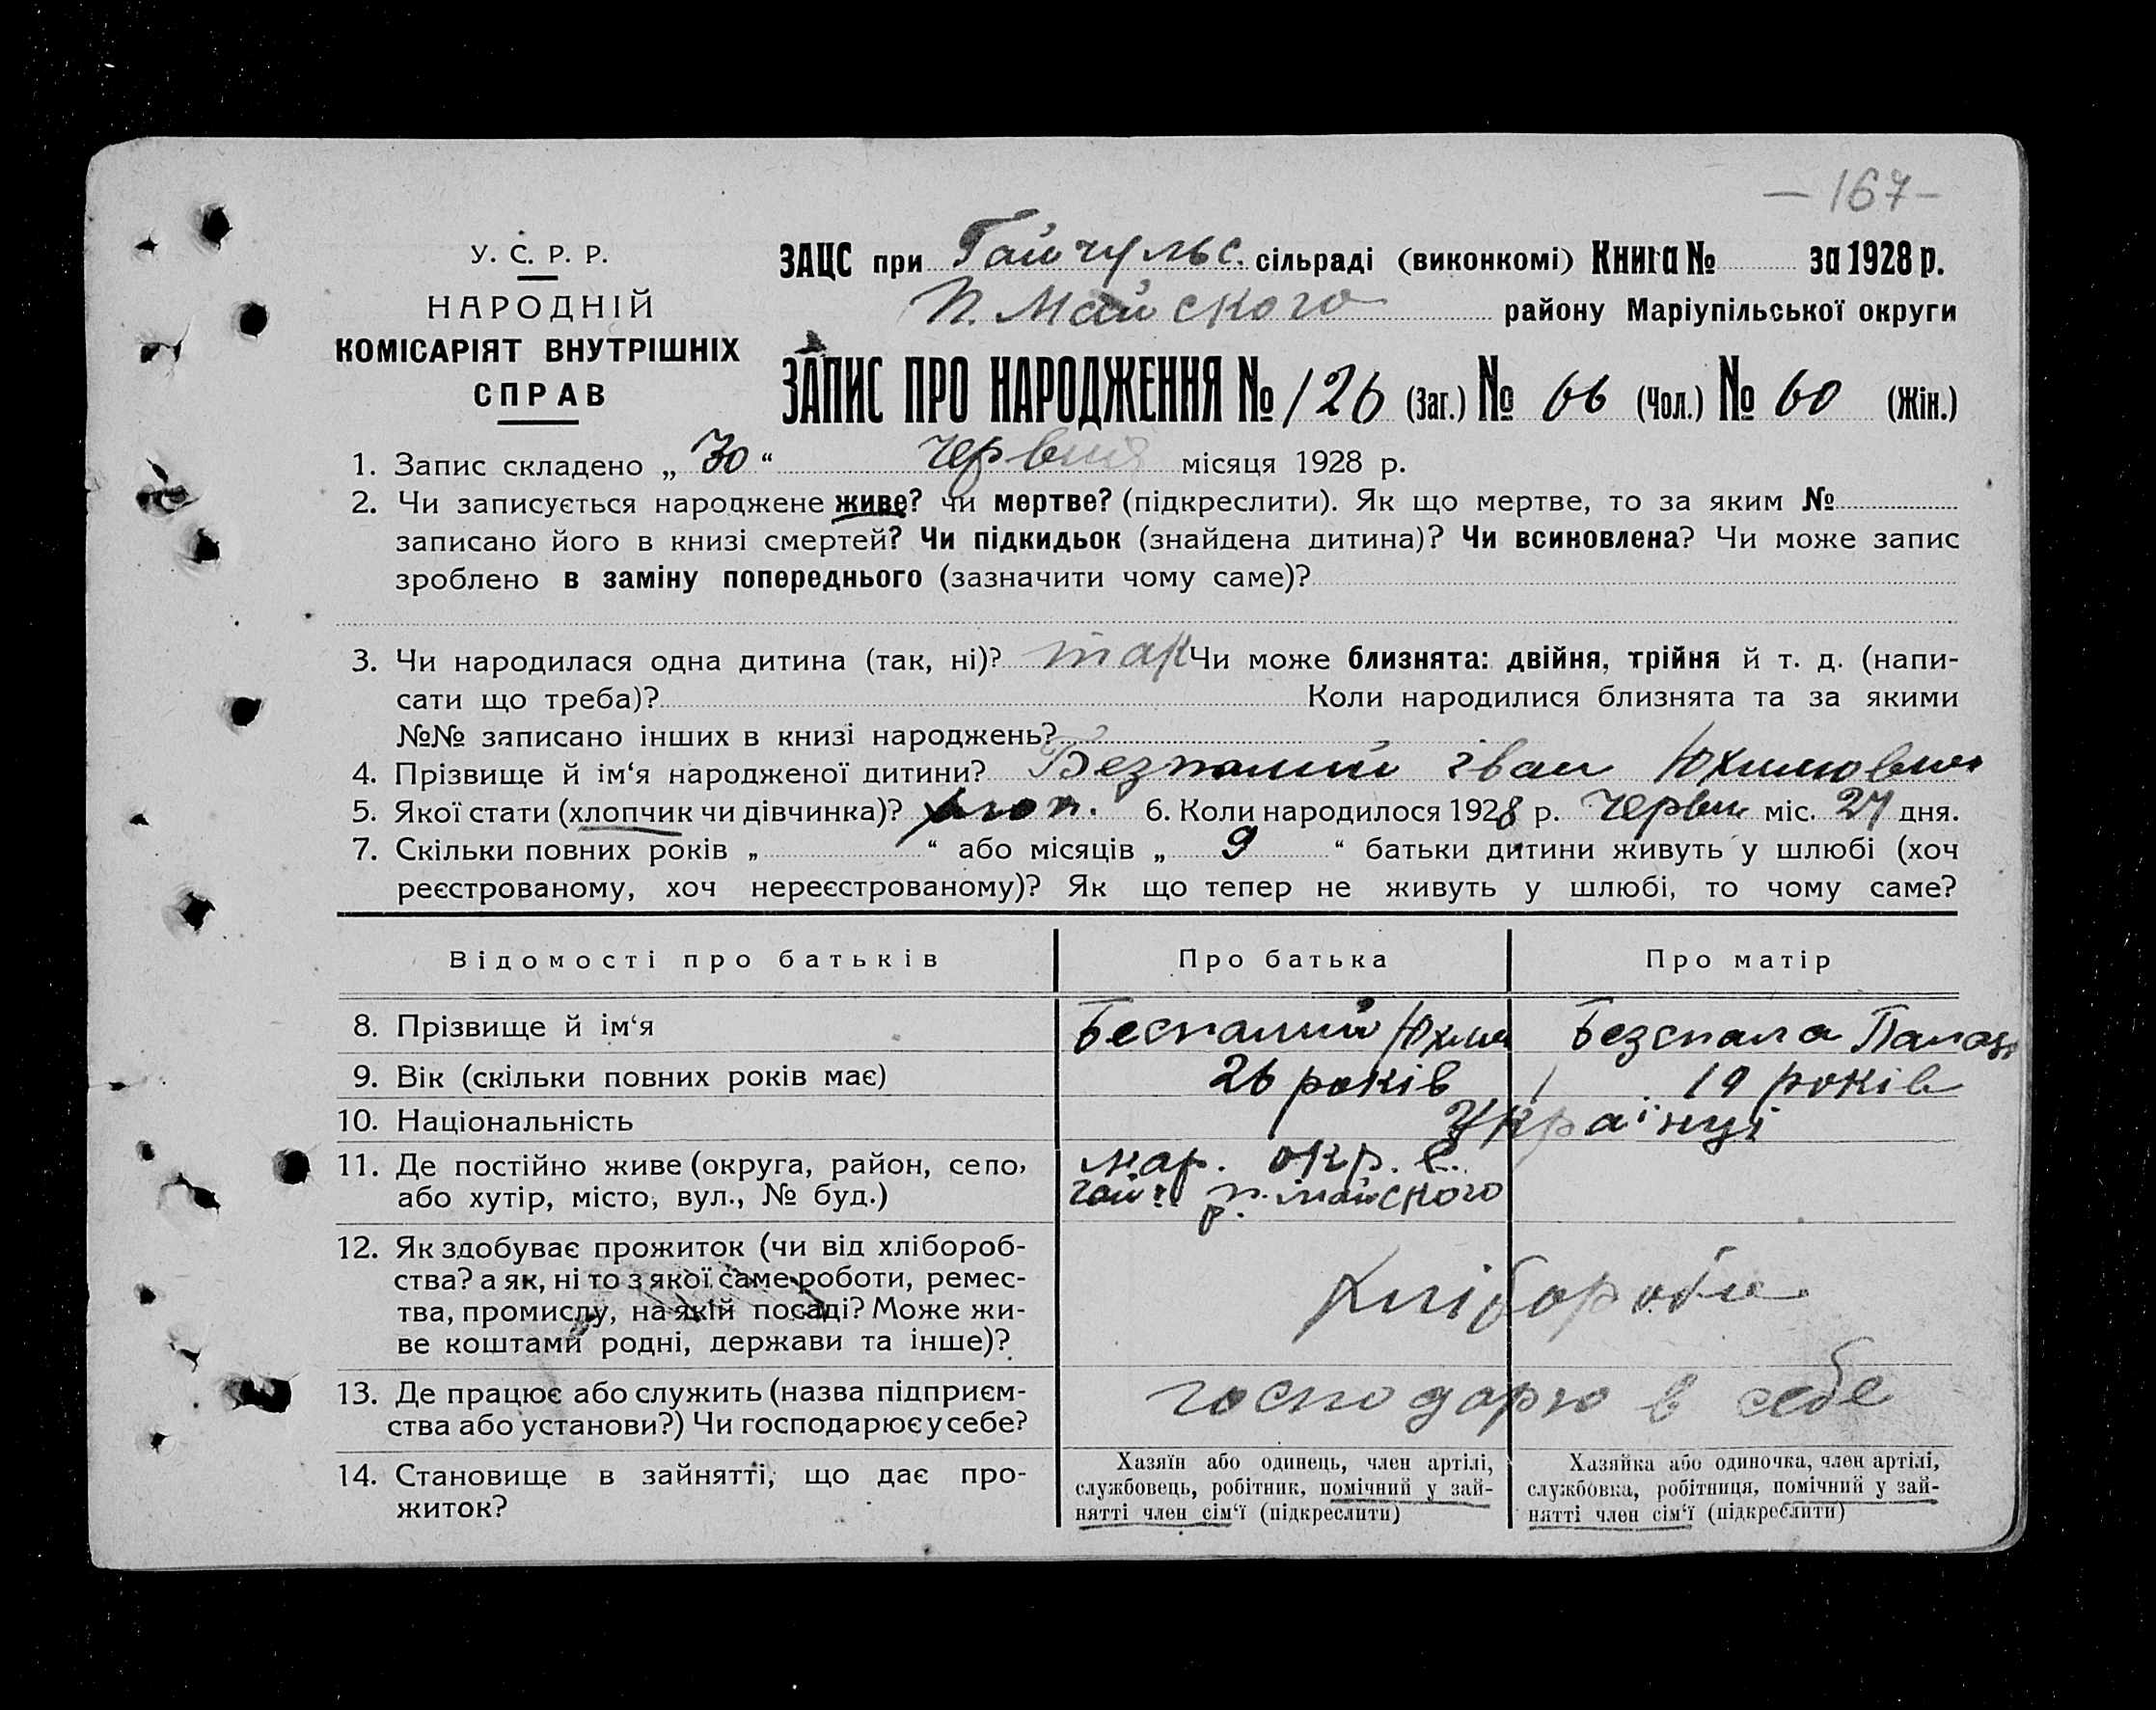 — 167 —
У. С. Р. Р.
НАРОДНІЙ
КОМІСАРІЯТ ВНУТРІШНІХ
СПРАВ
ЗАЦС при Гайчульс. сільраді (виконкомі) Книга № за 1928 р.
П. Майского району Маріупільської округи
ЗАПИС ПРО НАРОДЖЕННЯ № 126 (Заг.) № 66 (Чол.) № 60 (Жін.)
1. Запис складено „ 30 “ червня місяця 1928 р.
2. Чи записується народжене живе? чи мертве? (підкреслити). Як що мертве, то за яким №
записано його в книзі смертей? Чи підкидьок (знайдена дитина)? Чи всиновлена? Чи може запис
зроблено в заміну попереднього (зазначити чому саме)?
3. Чи народилася одна дитина (так, ні)? так Чи може близнята: двійня, трійня й т. д. (напи-
сати що треба)? Коли народилися близнята та за якими
№№ записано інших в книзі народжень?
4. Прізвище й ім‘я народженої дитини? Безпалий Іван Юхимович
5. Якої стати (хлопчик чи дівчинка)? хлоп. 6. Коли народилося 1928 р. Червн міс. 27 дня.
7. Скільки повних років „ “ або місяців „ 9 “ батьки дитини живуть у шлюбі (хоч
реєстрованому, хоч нереєстрованому)? Як що тепер не живуть у шлюбі, то чому саме?
Відомості про батьків Про батька Про матір
8. Прізвище й ім‘я Беспалий Юхим Безспала Палаж
9. Вік (скільки повних років має) 26 років 19 років
10. Національність Українці
11. Де постійно живе (округа, район, село,
або хутір, місто, вул., № буд.)
мар. окр. с.
Гайч. р. п. майского
12. Як здобуває прожиток (чи від хлібороб-
ства? а як, ні то з якої саме роботи, ремес-
тва, промислу, на якій посаді? Може жи-
ве коштами родні, держави та інше)?
Хлібороби
13. Де працює або служить (назва підприєм-
ства або установи?) Чи господарює у себе?
господарю в себе
14. Становище в зайнятті, що дає про-
житок?
Хазяїн або одинець, член артілі,
службовець, робітник, помічний у зай-
нятті член сім‘ї (підкреслити)
Хазяйка або одиночка, член артілі,
службовка, робітниця, помічний у зай-
нятті член сім‘ї (підкреслити)